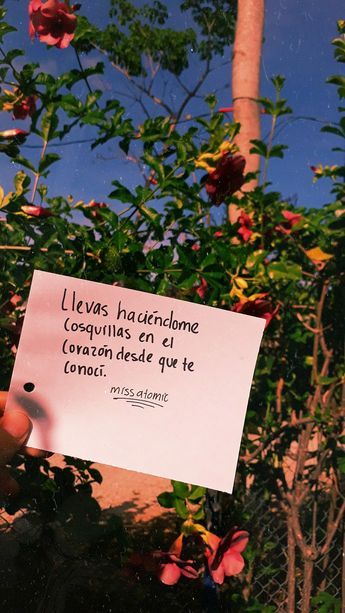 Llevas haciéndome
cosquillas en el
corazón desde que te
conocí.
miss atomic